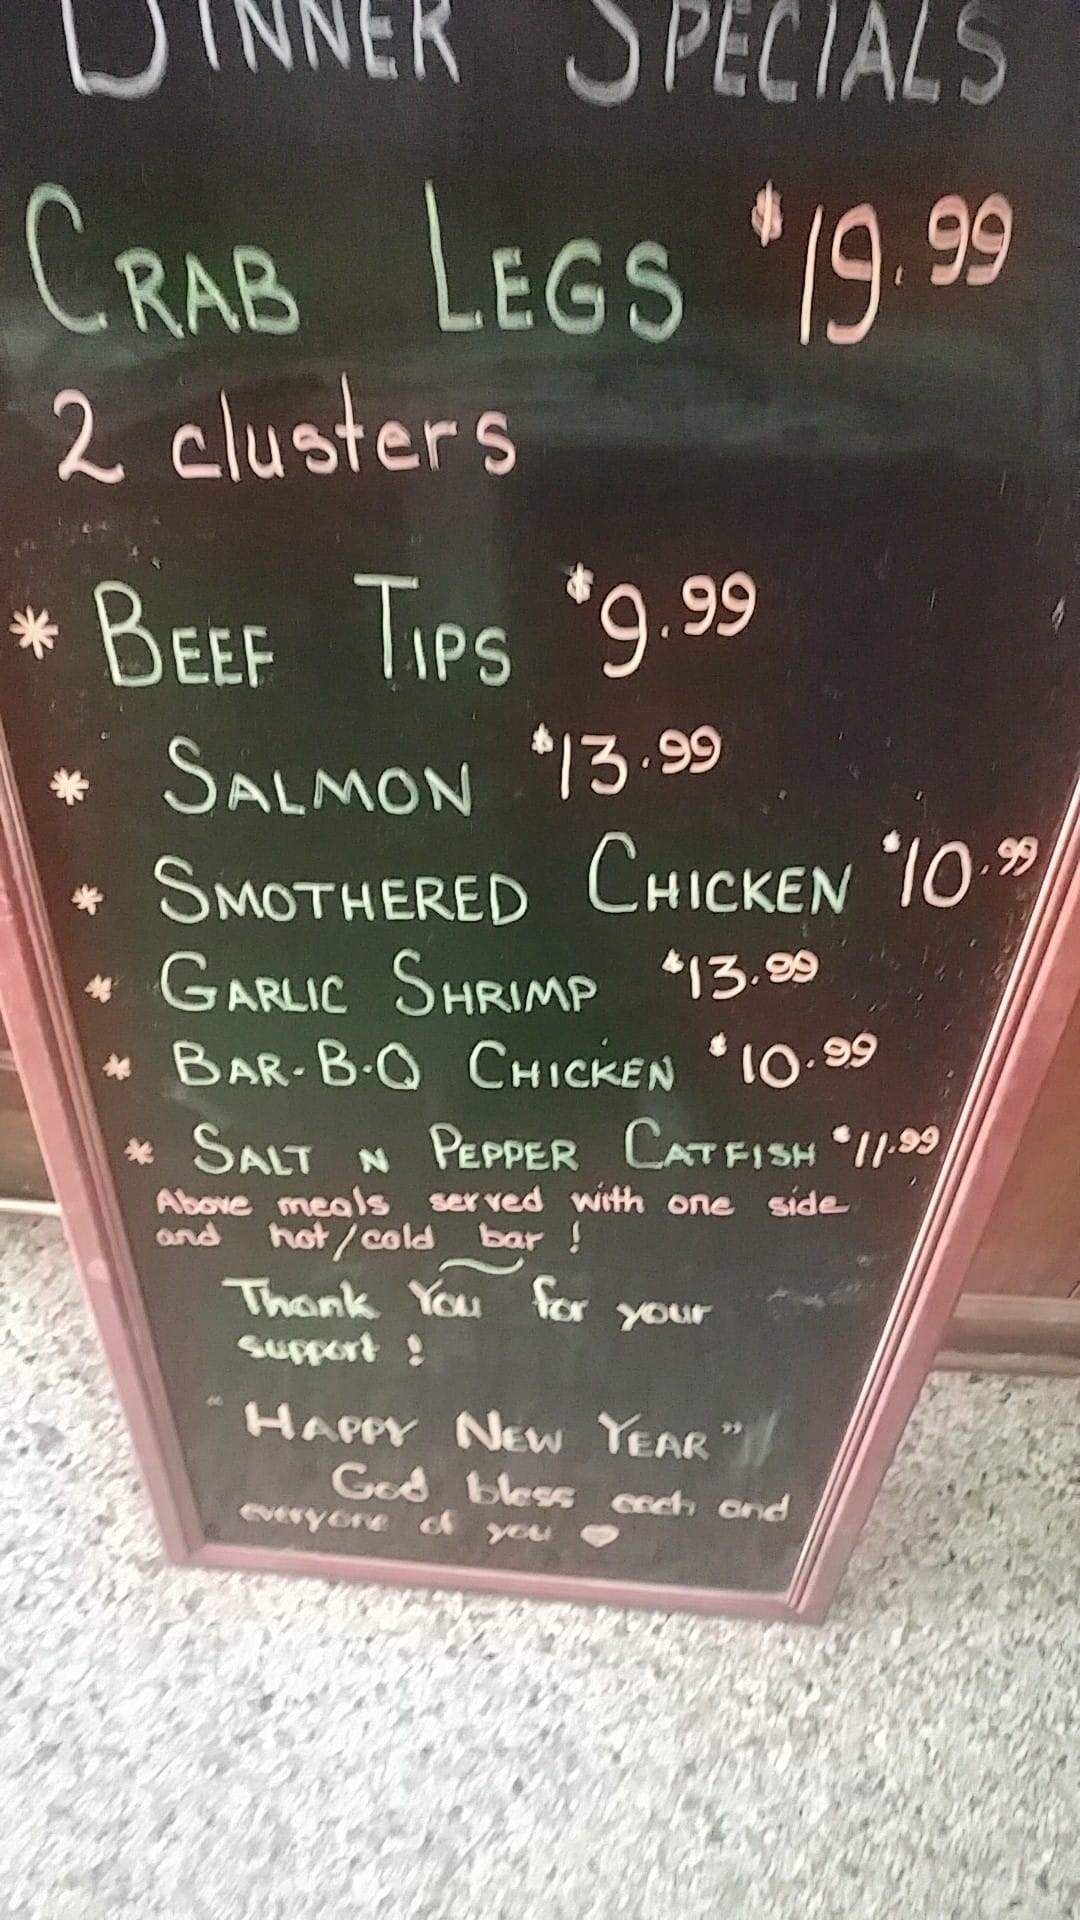 DINNER SPECIALS
CRAB LEGS $19.99
2 clusters
* BEEF TIPS $9.99
* SALMON $13.99
* SMOTHERED CHICKEN $10.99
* GARLIC SHRIMP $13.99
* BAR-B-Q CHICKEN $10.99
* SALT N PEPPER CATFISH $11.99
Above meals served with one side
and hot/cold bar !
Thank You for your
support !
"HAPPY NEW YEAR"
God bless each and
everyone of you ♥